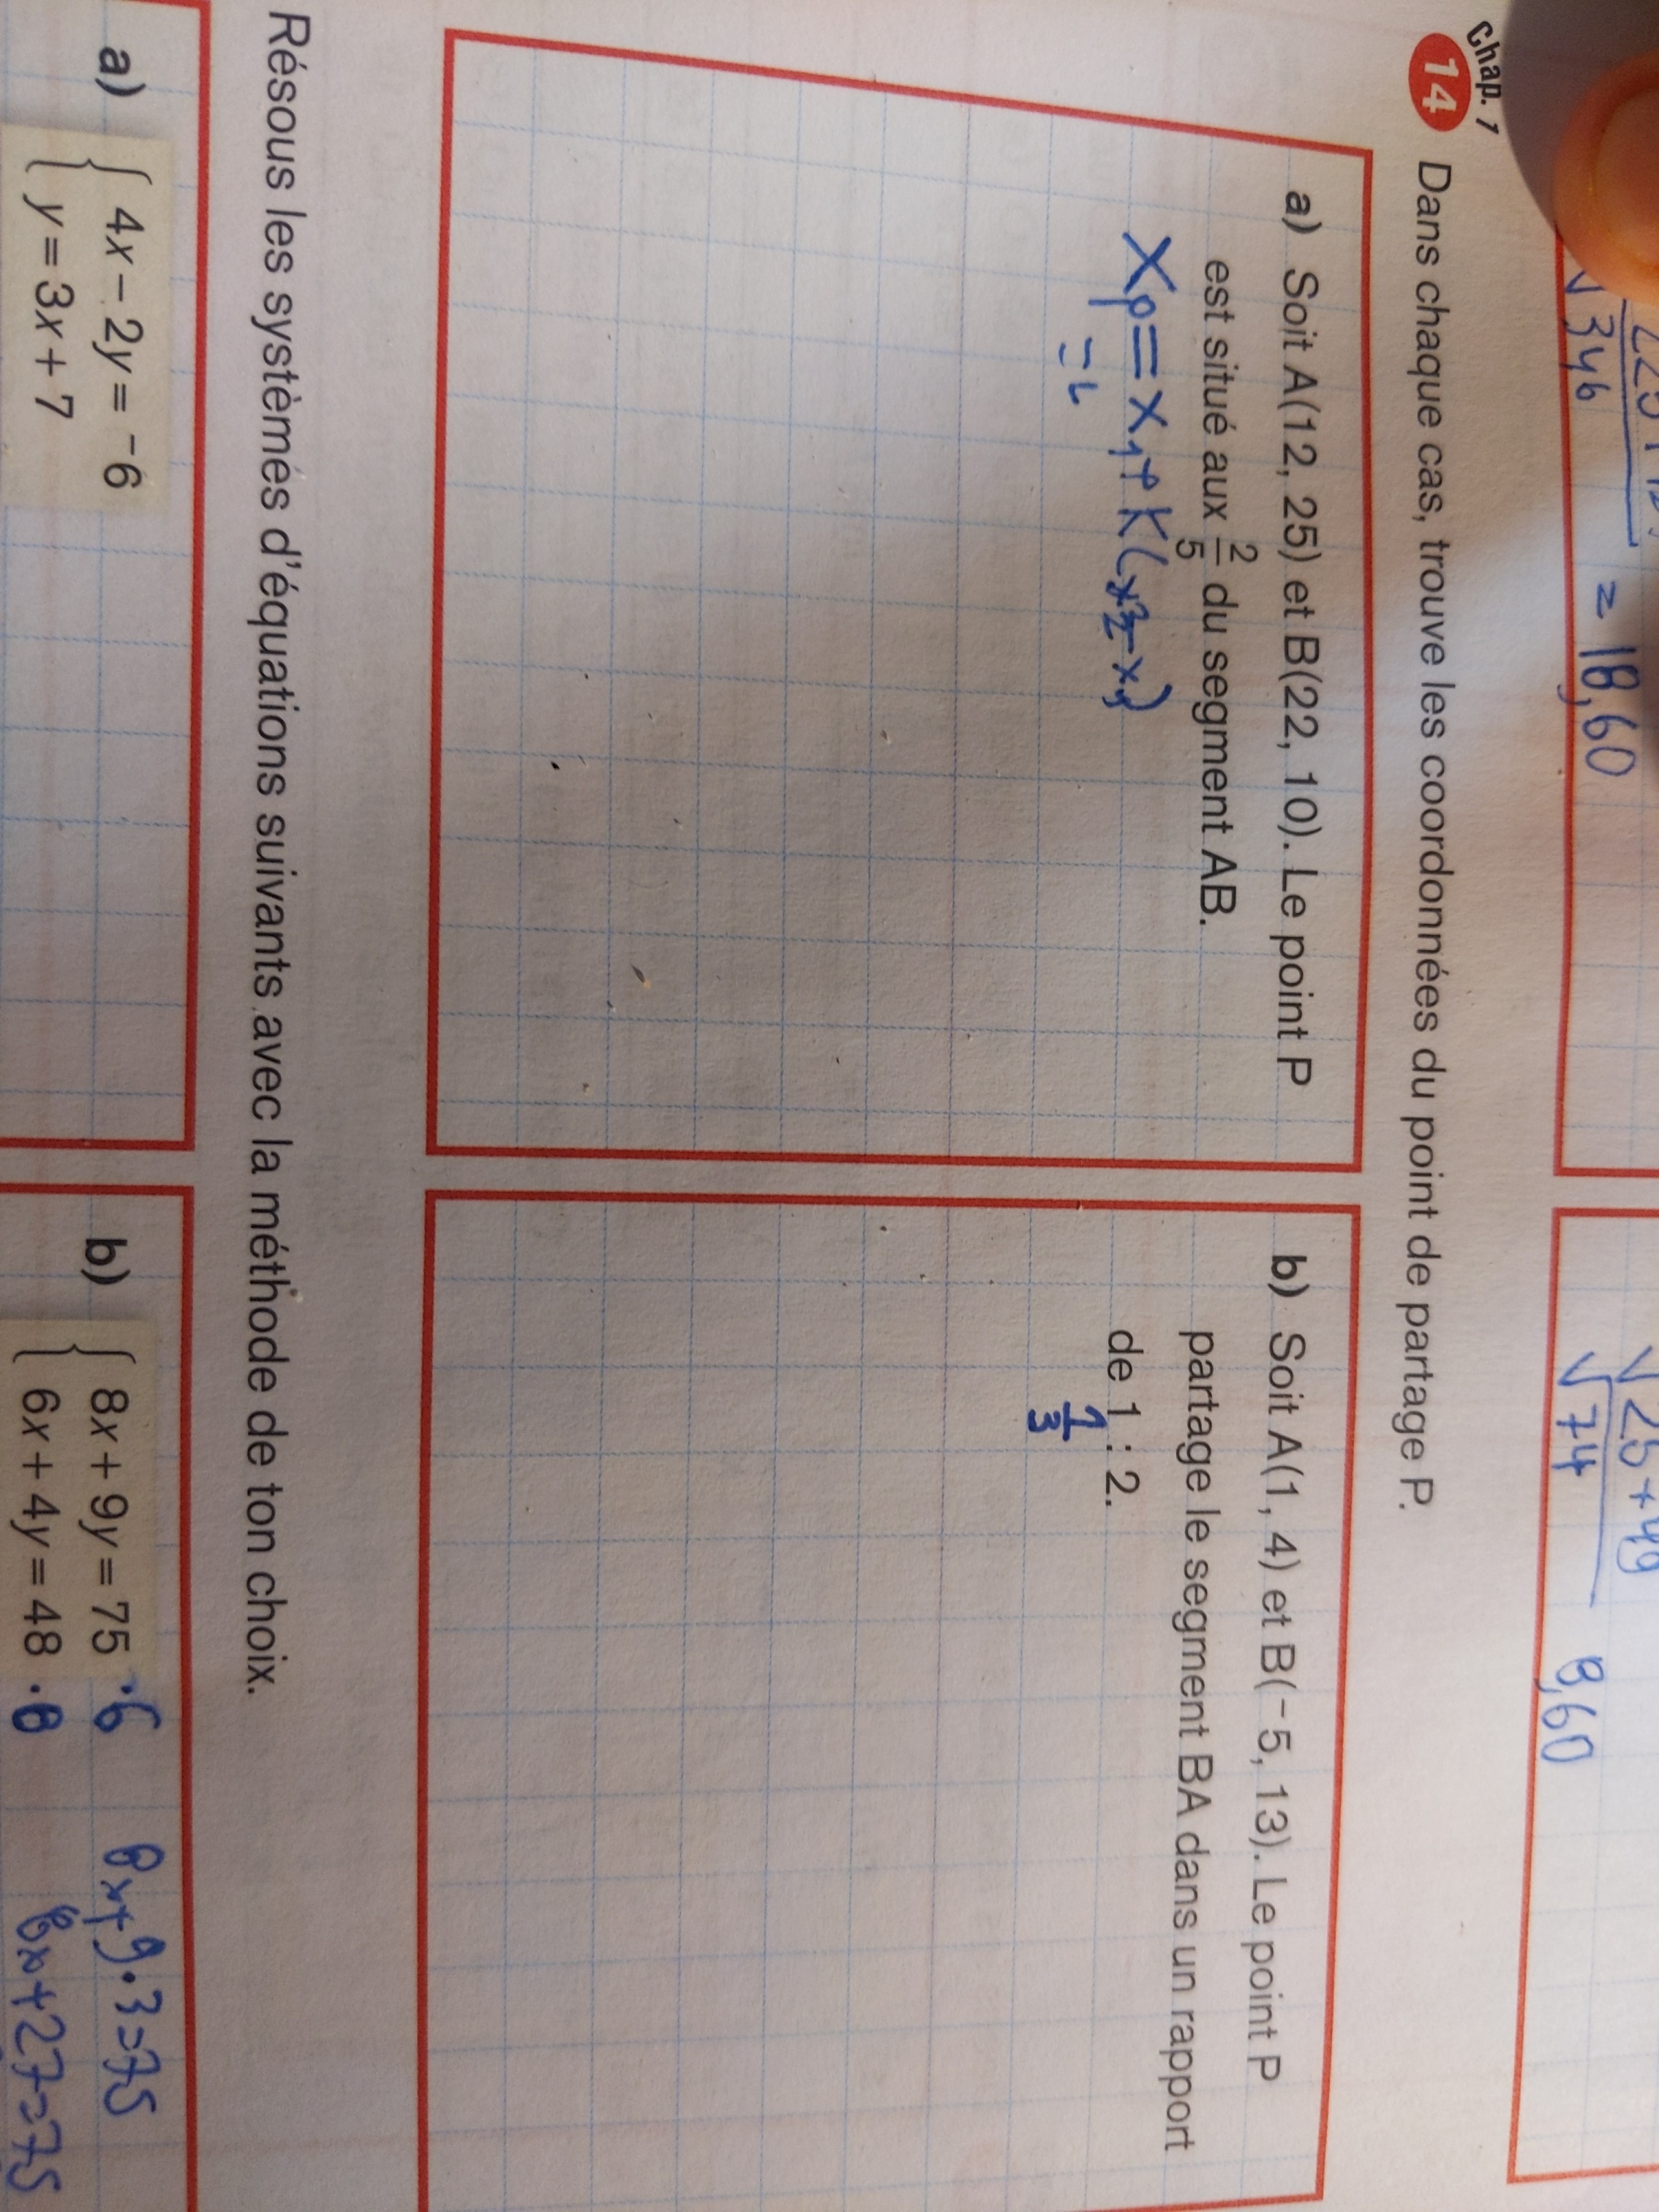 √346 ≈ 18,60
√25+49
√74 8,60
Chap. 1
14 Dans chaque cas, trouve les coordonnées du point de partage P.
a) Soit A(12, 25) et B(22, 10). Le point P
est situé aux 2/5 du segment AB.
b) Soit A(1, 4) et B(−5, 13). Le point P
partage le segment BA dans un rapport
de 1 : 2.
1/3
Résous les systèmes d'équations suivants avec la méthode de ton choix.
a) { 4x − 2y = −6
y = 3x + 7
b) { 8x + 9y = 75 ·6
6x + 4y = 48 ·8
8x+9·3=75
8x+27=75